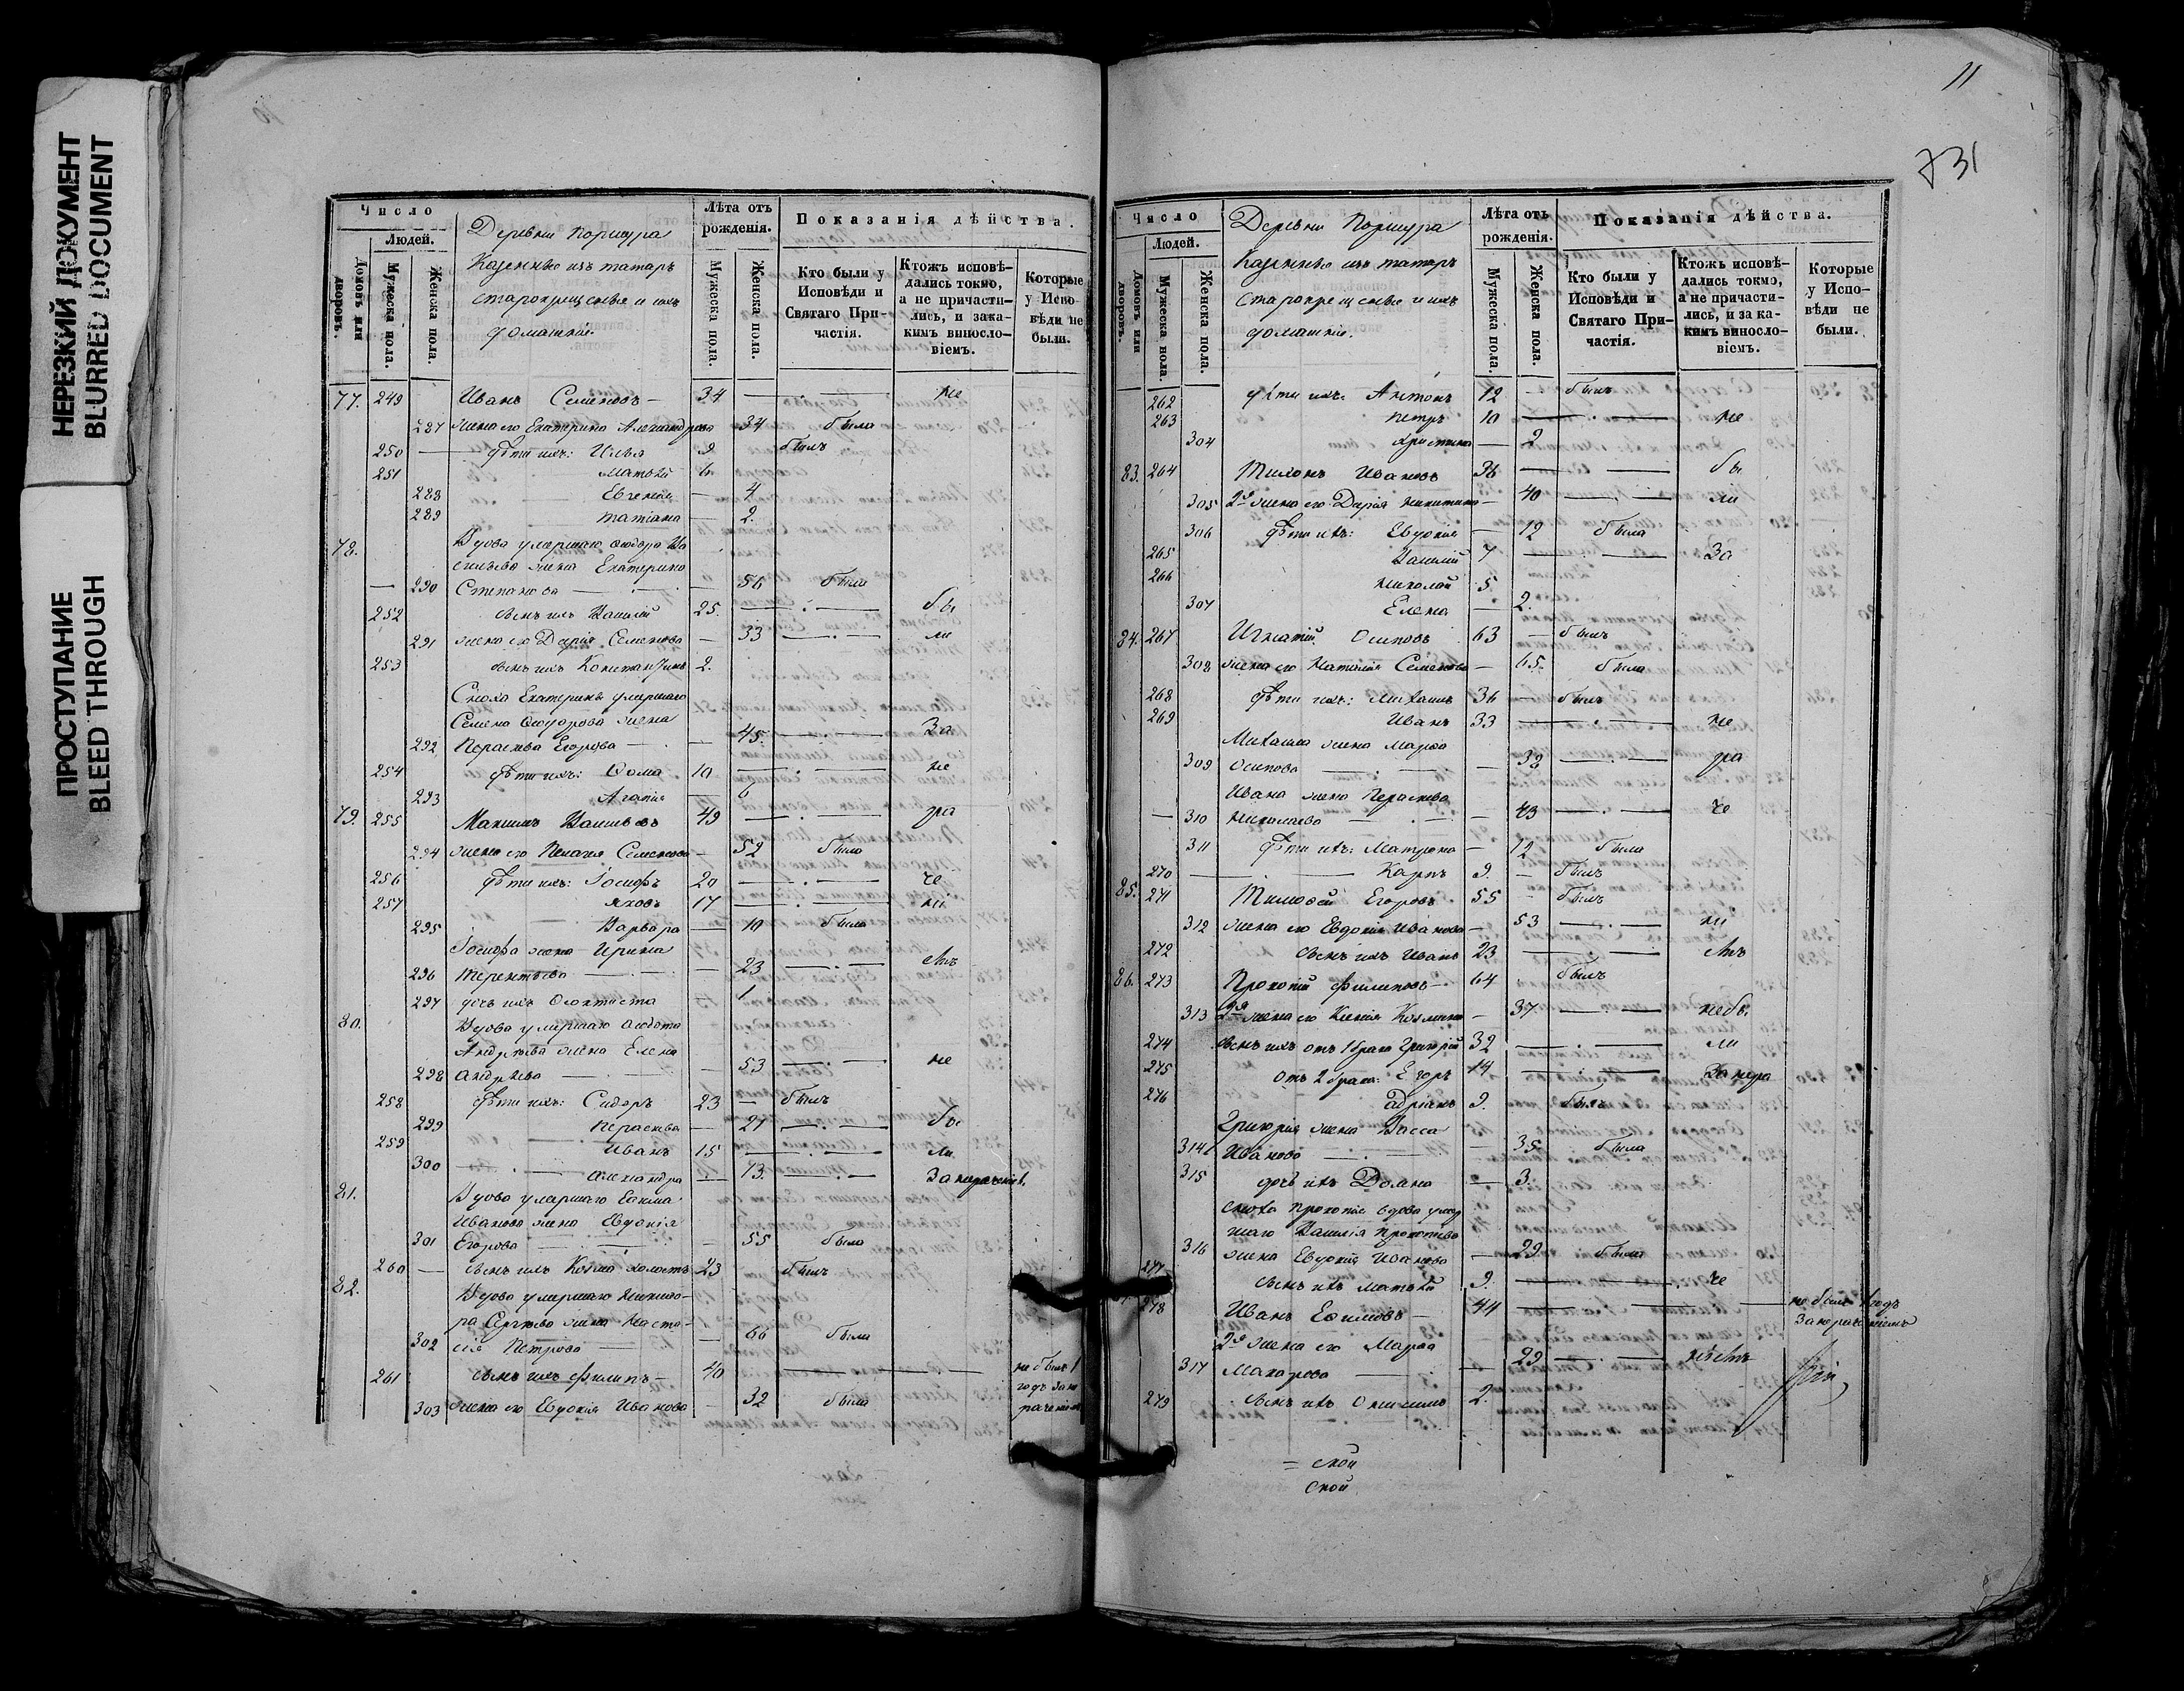 НЕРЕЗКИЙ ДОКУМЕНТ
BLURRED DOCUMENT
ПРОСТУПАНИЕ
BLEED THROUGH
Число
Людей.
Домовъ или дворовъ.
Мужеска пола.
Женска пола.
Деревни Поршура
Казенные изъ татаръ
старокрещеные и ихъ
домашніе.
Лѣта отъ рожденія.
Мужеска пола.
Женска пола.
Показанія дѣйства.
Кто были у Исповѣди и Святаго Причастія.
Ктожъ исповѣ-
дались токмо,
а не причасти-
лись, и зака-
кимъ винносло-
віемъ.
Которые
у Испо-
вѣди не
были.
77. 249 Иванъ Семеновъ 34 не
287 жена его Екатерина Александрова 34 была
250 дѣти ихъ: Илья 9 былъ
251 Матѳей 6
288 Евгенія 4
289 Татіана 2.
78. Вдова умершаго Ѳеодора Ва
сильева жена Екатерина
290 Степанова 56 была
252 сынъ ихъ Василій 25. бы
291 жена его Дарія Семенова 33 ли
253 сынъ ихъ Константинъ 2.
Сноха Екатерины умершаго
Семена Ѳеодорова жена
292 Параскева Егорова 45. За
254 дѣти ихъ: Ѳома 10 не
293 Агапія 6
79. 255 Максимъ Васильевъ 49 ра
294 жена его Пелагея Семенова 52 была
256 дѣти ихъ: Іосифъ 20 че
257 Яковъ 17 ні
295 Варвара 10 была
Іосифа жена Ирина
296 Терентьева 23 емъ
297 дочь ихъ Ѳеоктиста 1.
80. Вдова умершаго Ѳедота
Андреева жена Елена
298 Андреева 53 не
258 дѣти ихъ: Сидоръ 23 былъ
299 Параскева 21 бы
259 Иванъ 15 ли
300 Александра 13. За нераченіе.
81. Вдова умершаго Евѳима
Иванова жена Евдокія
301 Егорова 55 была
260 сынъ ихъ Козма холостъ 23 былъ
82. Вдова умершаго Никифо-
ра Сергѣева жена Наста-
302 сія Петрова 66 была
261 сынъ ихъ Филипъ 40 не былъ 1
годъ за не
раченіемъ
303 жена его Евдокія Иванова 32 была
11
731
Число
Людей.
Домовъ или дворовъ.
Мужеска пола.
Женска пола.
Деревни Поршура
Казенные изъ татаръ
старокрещеные и ихъ
домашніе.
Лѣта отъ рожденія.
Мужеска пола.
Женска пола.
Показанія дѣйства.
Кто были у Исповѣди и Святаго При-
частія.
Ктожъ исповѣ-
дались токмо,
а не причасти-
лись, и за ка-
кимъ винносло-
віемъ.
Которые
у Испо-
вѣди не
были.
262 дѣти ихъ: Антонъ 12 былъ
263 Петръ 10 не
304 Христина 2
83. 264 Тихонъ Ивановъ 36 бы
305 2я жена его Дарія Никитина 40 ли
306 дѣти ихъ: Евдокія 12 была
265 Василій 7 За
266 Николай 5
307 Елена 2.
84. 267 Игнатій Осиповъ 63 былъ
308 жена его Наталія Семенова 65. была
268 дѣти ихъ: Михаилъ 36 былъ
269 Иванъ 33 не
Михаила жена Марѳа
309 Осипова 38 ра
Ивана жена Параскева
310 Николаева 43 че
311 дѣти ихъ: Матрона 12 была
270 Карпъ 9. былъ
85. 271 Тимоѳей Егоровъ 55 былъ
312 жена его Евдокія Иванова 53 ні
272 сынъ ихъ Иванъ 23 емъ
86. 273 Прокопій Филиповъ 64 былъ
313 2я жена его Ксенія Козмина 37. не бы
274 сынъ ихъ отъ 1 брака Григорій 32 ли
275 отъ 2 брака: Егоръ 14 За нера
276 Адріанъ 9. былъ
Григорія жена Васса
314 Иванова 35. была
315 дочь ихъ Домна 3.
сноха Прокопія вдова умер
шаго Василія Прокопіева
316 жена Евдокія Иванова 29. была
277 сынъ ихъ Матѳей 9. че
278 Иванъ Евѳимовъ 44 не былъ 1 годъ
За нераченіемъ
2я жена его Марѳа
317 Макарова 29 ніемъ
279 сынъ ихъ Онисимъ 2.
= ской
ской